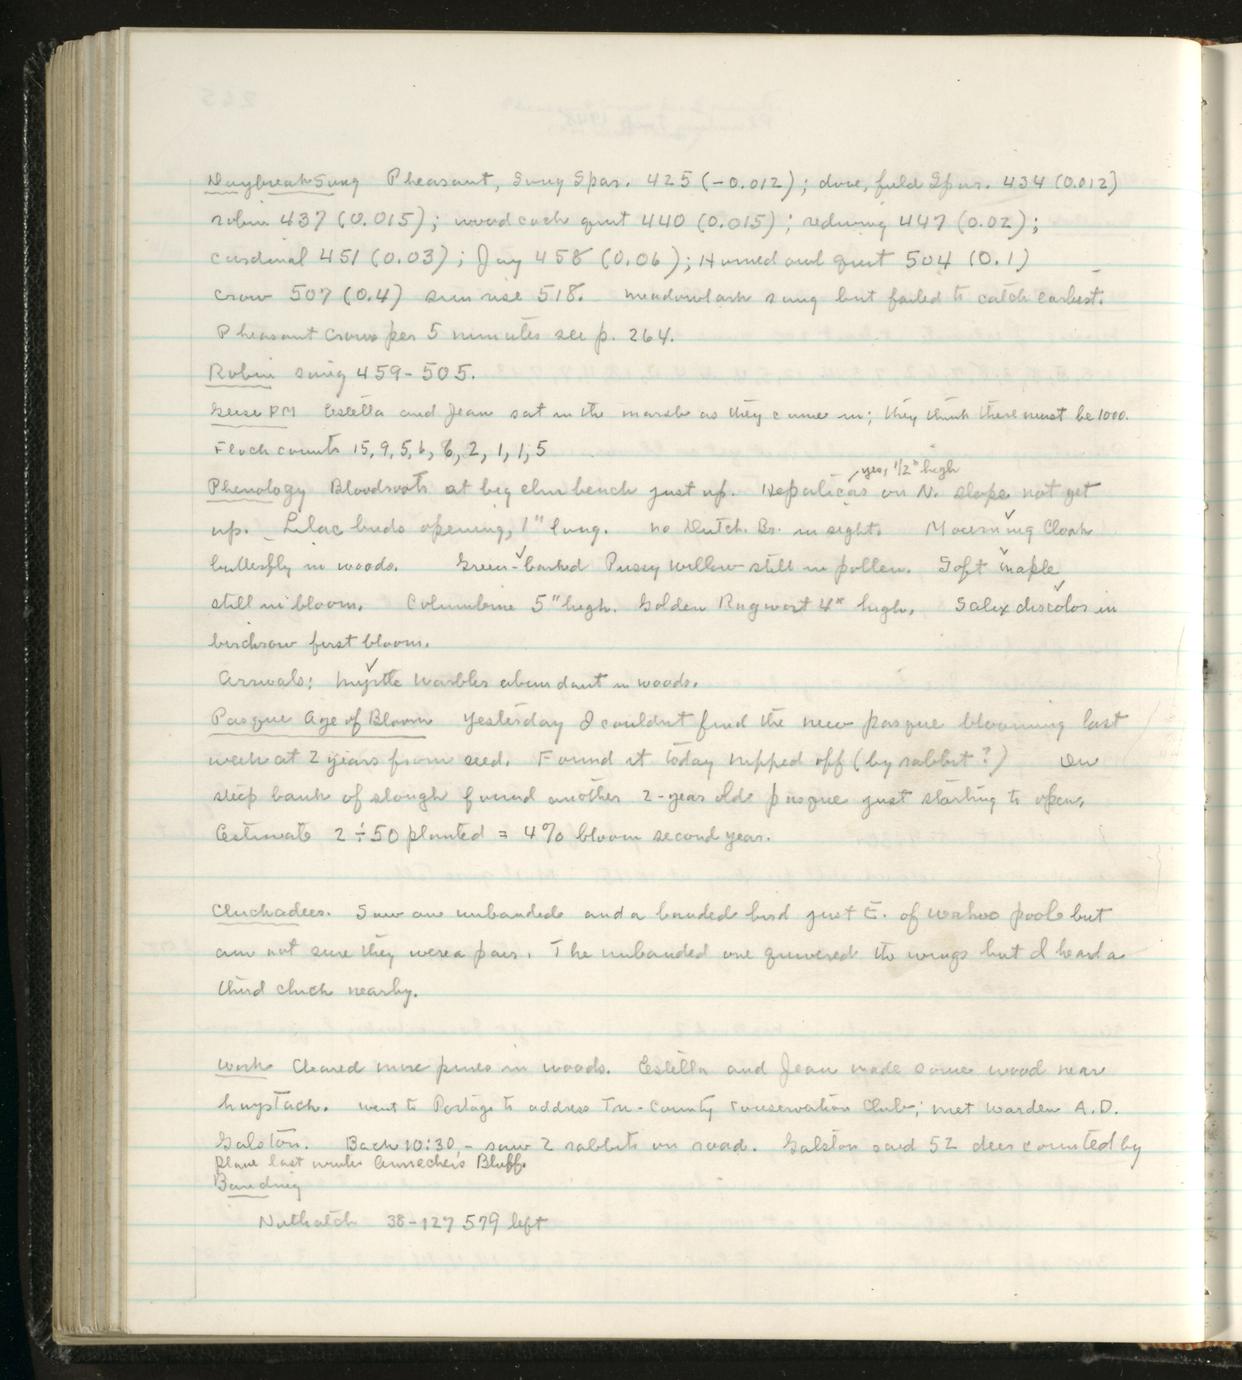 Daybreak Song Pheasant, Song Spar. 425 (-0.012); dove, field Spar. 434 (0.012)
robin 437 (0.015); woodcock quit 440 (0.015); redwing 447 (0.02);
cardinal 451 (0.03); Jay 458 (0.06); Horned owl quit 504 (0.1)
crow 507 (0.4) sunrise 518. Meadowlark sang but failed to catch earliest.
Pheasant crows per 5 minutes see p. 264.
Robin song 459-505.
Geese PM Estella and Jean sat in the marsh as they came in; they think there must be 1000.
Flock counts 15, 9, 5, 6, 6, 2, 1, 1, 5
yes, 1/2" high
Phenology Bloodroots at big elm bench just up. Hepaticas on N. slope not yet
up. Lilac buds opening, 1" long. No Dutch. Br. in sight. Mourning Cloak
butterfly in woods. Green-barked Pussy Willow still in pollen. Soft maple
still in bloom. Columbine 5" high. Golden Ragwort 4" high. Salix discolor in
birchrow first bloom.
Arrivals: Myrtle Warbler abundant in woods.
Pasque Age of Bloom Yesterday I couldn't find the new pasque blooming last
week at 2 years from seed. Found it today nipped off (by rabbit?) On
steep bank of slough found another 2-year old pasque just starting to open.
Estimate 2 ÷ 50 planted = 4% bloom second year.
Chickadees. Saw an unbanded and a banded bird just E. of Wahoo pool but
am not sure they were a pair. The unbanded one quivered the wings but I heard a
third chick nearby.
Work Cleared more pines in woods. Estella and Jean made some wood near
haystack. Went to Portage to address Tri-County Conservation Club; met Warden A.D.
Galston. Back 10:30, - saw 2 rabbits on road. Galston said 52 deer counted by
plane last winter Bluff.
Banding
Nuthatch 38-127 579 left